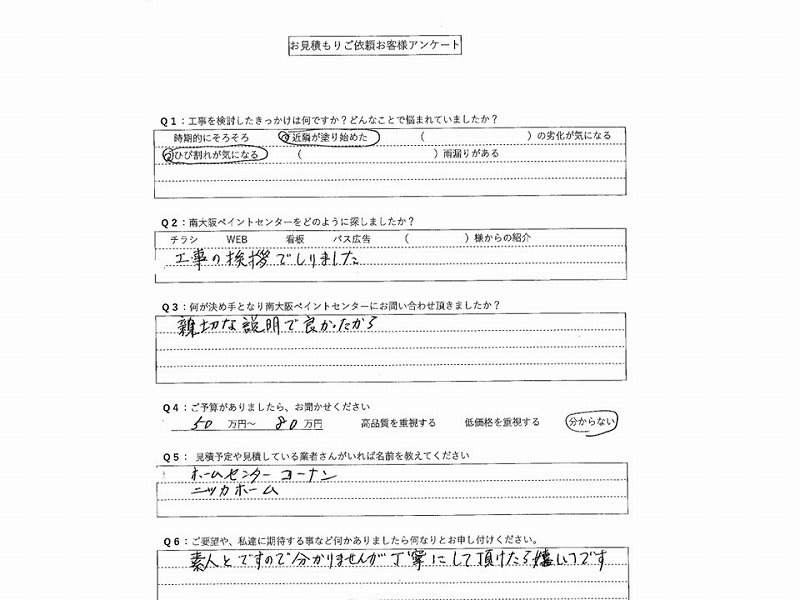 お見積もりご依頼お客様アンケート
Q1：工事を検討したきっかけは何ですか？どんなことで悩まれていましたか？
時期的にそろそろ ②近隣が塗り始めた （ ）の劣化が気になる
②ひび割れが気になる （ ）雨漏りがある
Q2：南大阪ペイントセンターをどのように探しましたか？
チラシ WEB 看板 バス広告 （ ）様からの紹介
工事の挨拶でしりました
Q3：何が決め手となり南大阪ペイントセンターにお問い合わせ頂きますか？
親切な説明で良かったから
Q4：ご予算がありましたら、お聞かせください
50 万円～ 80 万円 高品質を重視する 低価格を重視する 分からない
Q5： 見積予定や見積している業者さんがいれば名前を教えてください
ホームセンター コーナン
ニッカホーム
Q6：ご要望や、私達に期待する事など何かありましたら何なりとお申し付けください。
素人とですので分かりませんが丁寧にして頂けたら嬉しいです